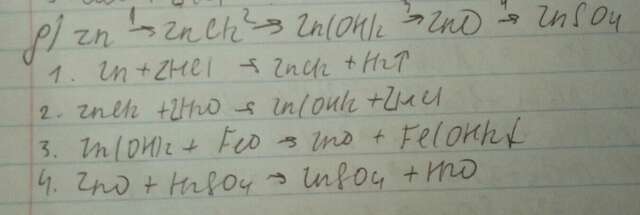 д) Zn ¹→ ZnCl₂ ²→ Zn(OH)₂ ³→ ZnO ⁴→ ZnSO₄
1. Zn + 2HCl → ZnCl₂ + H₂↑
2. ZnCl₂ + 2H₂O → Zn(OH)₂ + 2HCl
3. Zn(OH)₂ + FeO → ZnO + Fe(OH)₂↓
4. ZnO + H₂SO₄ → ZnSO₄ + H₂O